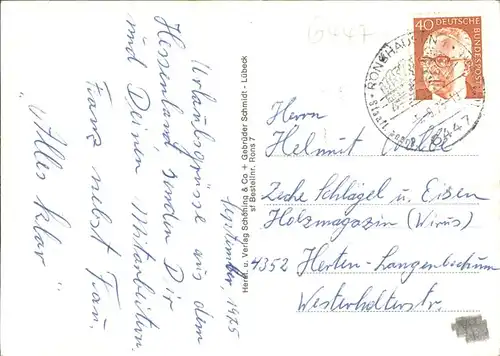 6447
Urlaubsgrüsse aus dem
Hessenland senden Dir
und Deinen Mitarbeitern
Franz nebst Frau.
"Alles klar"
September, 1975
Herst. u. Verlag Schöning & Co + Gebrüder Schmidt - Lübeck
st Bestellnr. Rons 7
40 DEUTSCHE BUNDESPOST
RONSHAUSEN
6447
Herrn
Helmut
Zeche Schlägel u. Eisen
Holzmagazin (Wirus)
4352 Herten-Langenbochum
Westerholterstr.